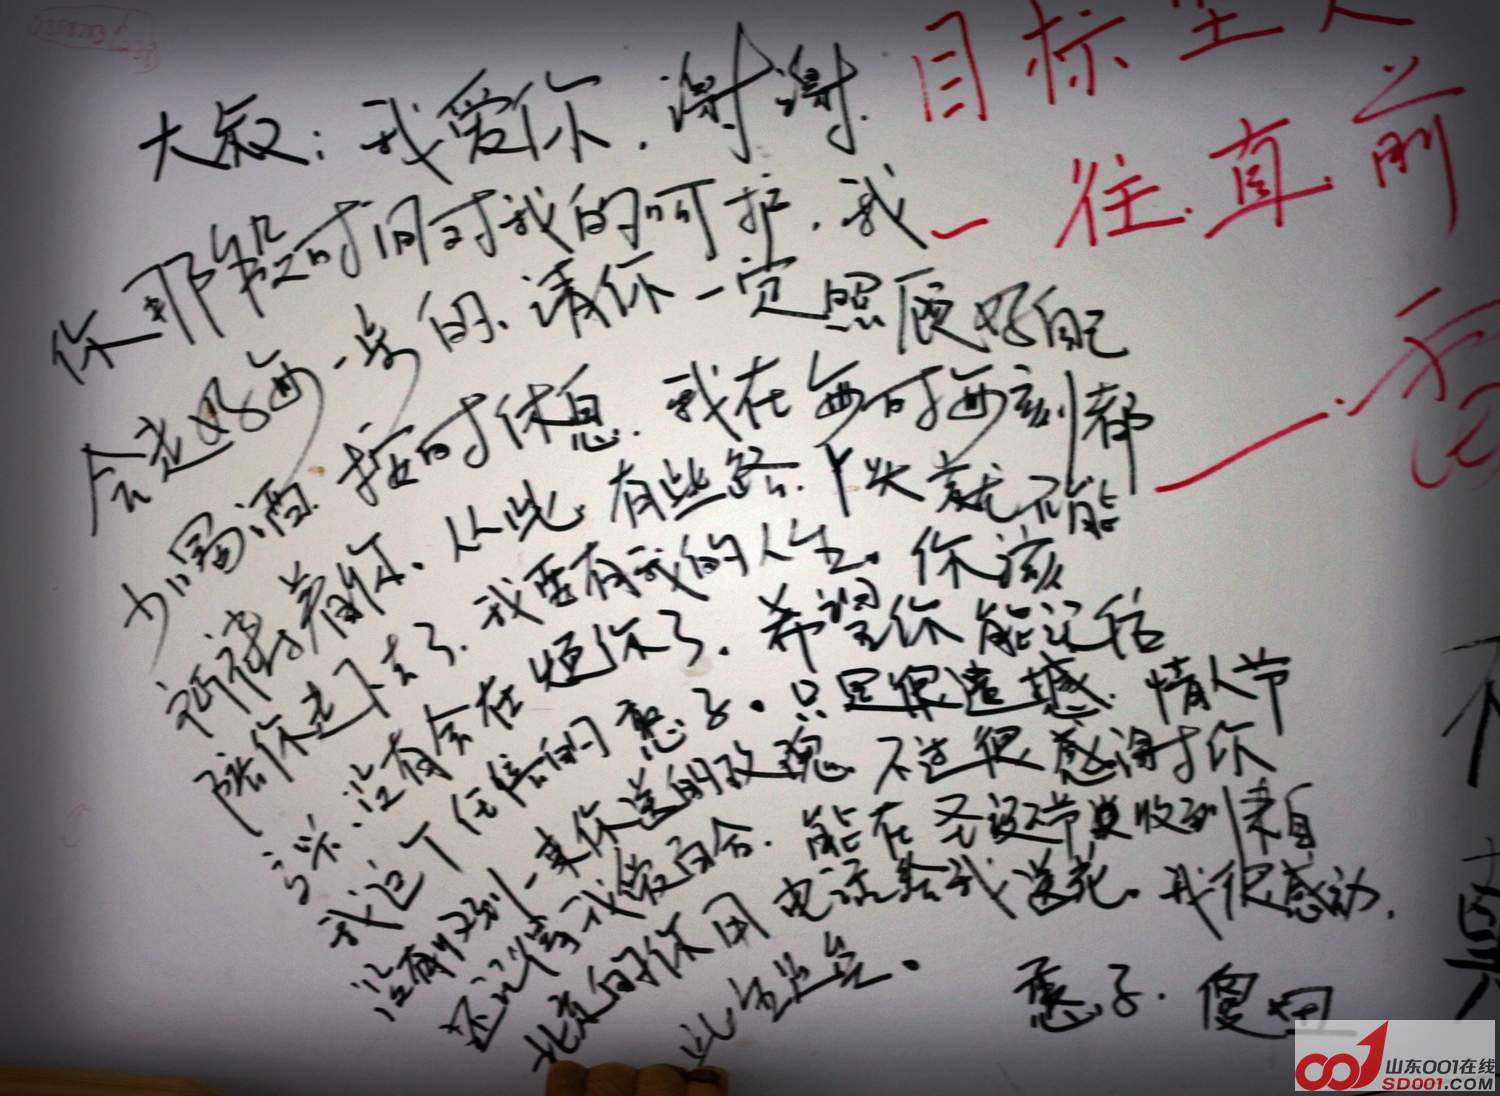 大叔：我爱你，谢谢
你那段时间对我的呵护，我
会走好每一步的、请你一定照顾好自己
少喝酒、按时休息、我在每时每刻都
祈祷着你、从此、有些路、丫头就不能
陪你走下去了、我要有我的人生。你该
没有会在烦你了、希望你能记住
我这个任性的憨子。只是很遗憾、情人节
没有收到一束你送的玫瑰、不过很感谢你
还记得我爱百合、能在圣诞节类收到来自
北京的你用电话给我送花。我很感动，
此生足矣。
憨子、傻妞
目标
一往直前
不
山东001在线
SD001.COM